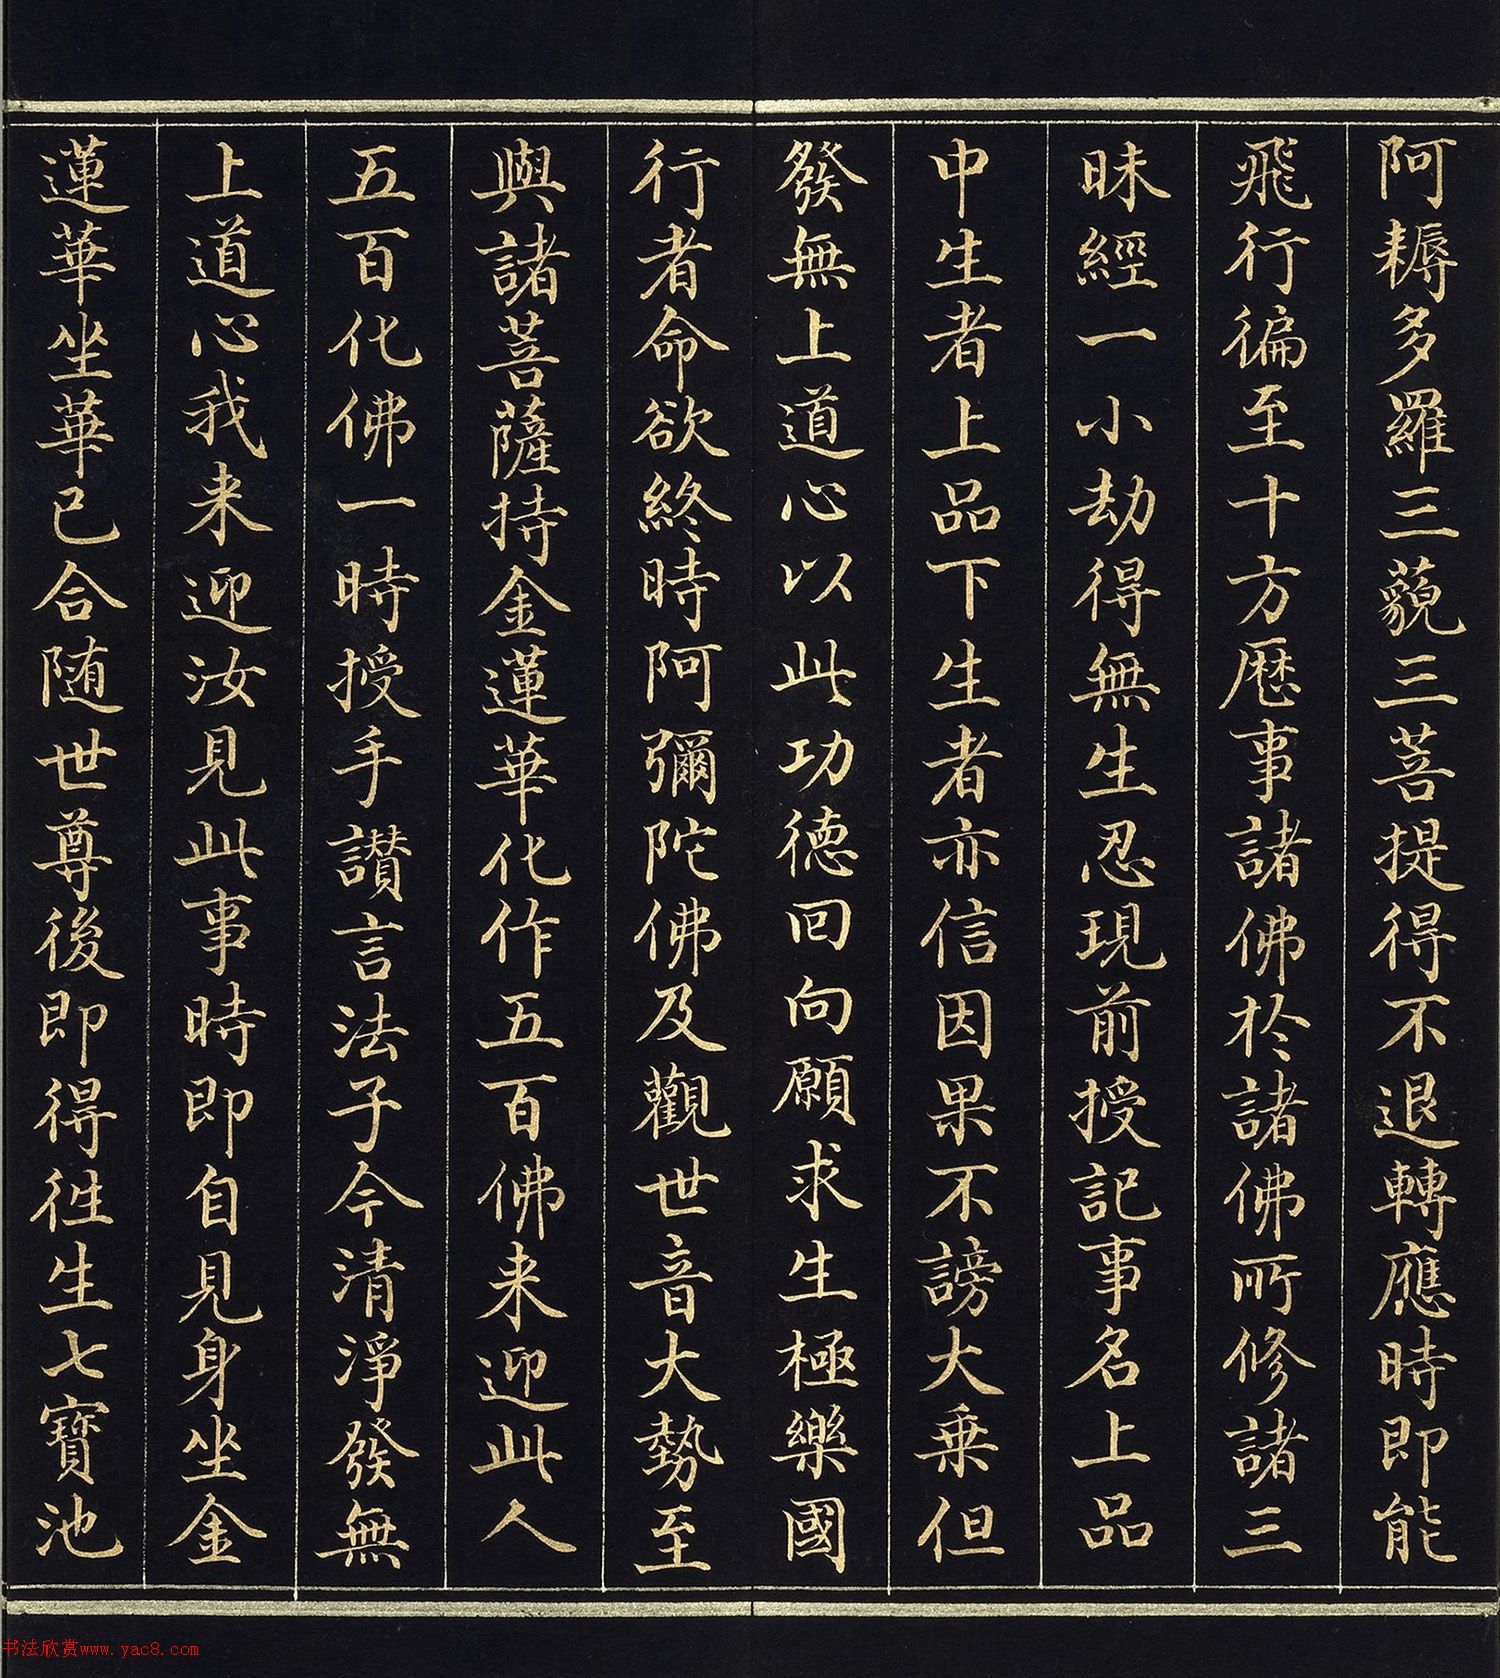 阿耨多羅三藐三菩提得不退轉應時即能
飛行徧至十方歷事諸佛於諸佛所修諸三
昧經一小劫得無生忍現前授記事名上品
中生者上品下生者亦信因果不謗大乗但
發無上道心以此功德回向願求生極樂國
行者命欲終時阿彌陀佛及觀世音大勢至
與諸菩薩持金蓮華化作五百佛来迎此人
五百化佛一時授手讃言法子今清淨發無
上道心我来迎汝見此事時即自見身坐金
蓮華坐華已合随世尊後即得徃生七寳池
书法欣赏www.yac8.com